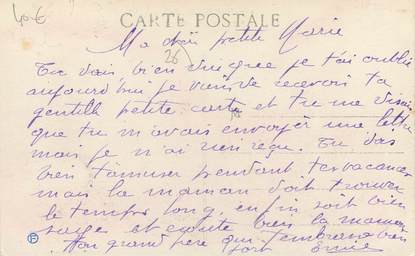 40€
CARTE POSTALE
Ma petite Marie
26
Tu vois bien que je t'ai oublié
aujourd'hui je viens de recevoir ta
gentille petite carte et tu me disais
que tu m'avais envoyer une lettre
mais je n'ai rien reçu. Tu dois
bien t'amuser pendant tes vacances
mais la maman doit trouver
le temps long, enfin soit bien
sage et écoute bien la maman
Ton grand père qui t'embrasse bien
fort